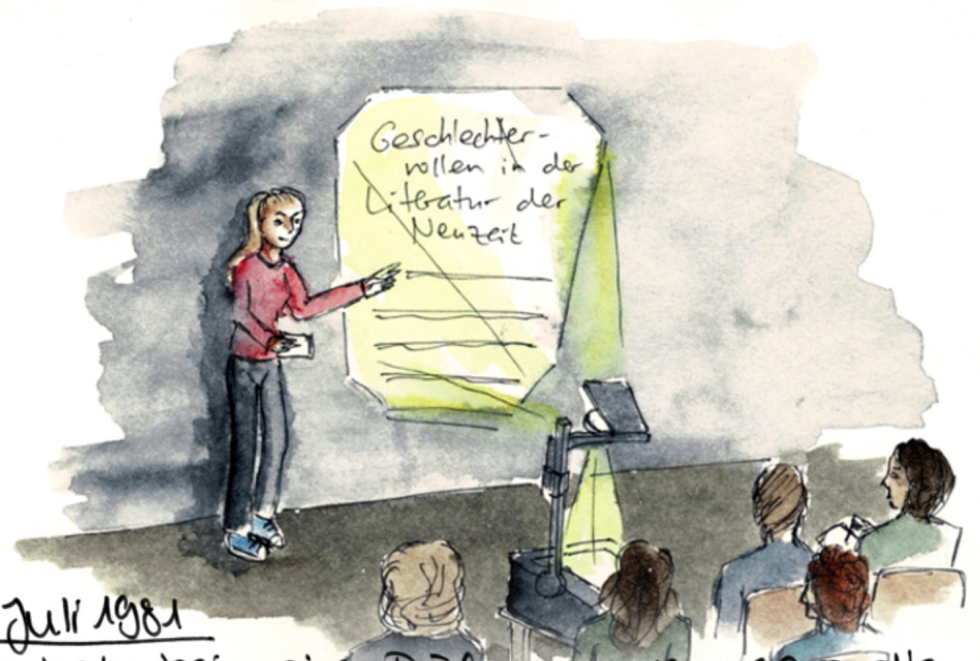 Geschlechter-
rollen in der
Literatur der
Neuzeit
Juli 1981